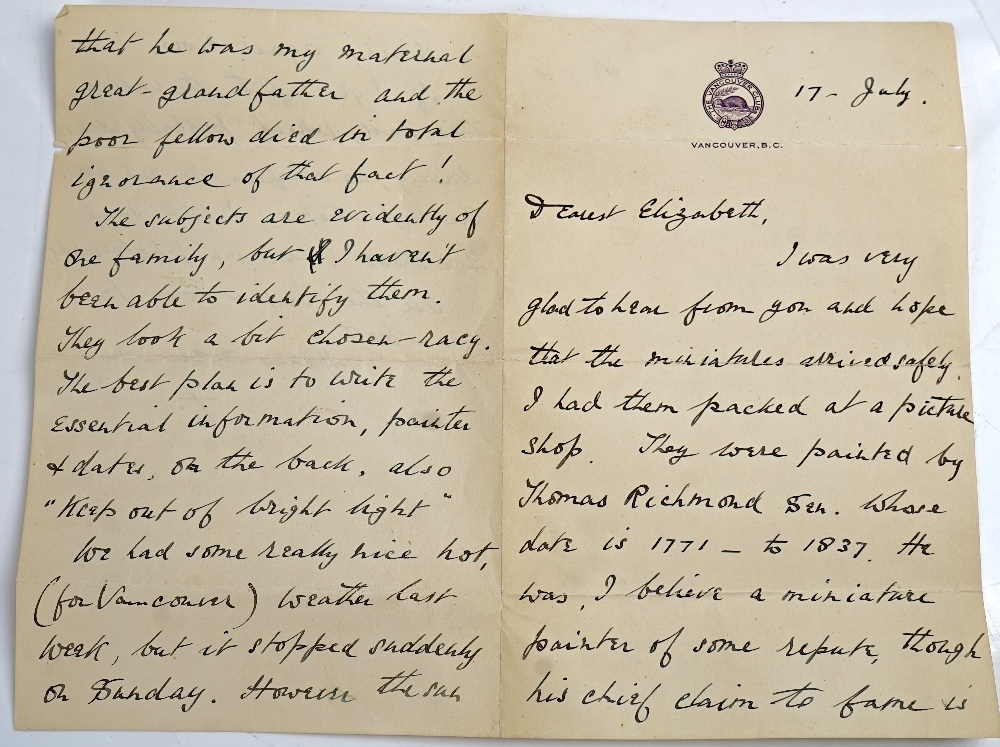 THE VANCOUVER CLUB
VANCOUVER, B.C.
17 - July.
Dearest Elizabeth,
I was very
glad to hear from you and hope
that the miniatures arrived safely.
I had them packed at a picture
shop. They were painted by
Thomas Richmond Sen. whose
date is 1771 - to 1837. He
was, I believe a miniature
painter of some repute, though
his chief claim to fame is
that he was my maternal
great-grandfather and the
poor fellow died in total
ignorance of that fact!
The subjects are evidently of
one family, but I haven't
been able to identify them.
They look a bit chosen-racy.
The best plan is to write the
essential information, painter
& dates, on the back, also
"Keep out of bright light"
We had some really nice hot,
(for Vancouver) weather last
week, but it stopped suddenly
on Sunday. However the sun